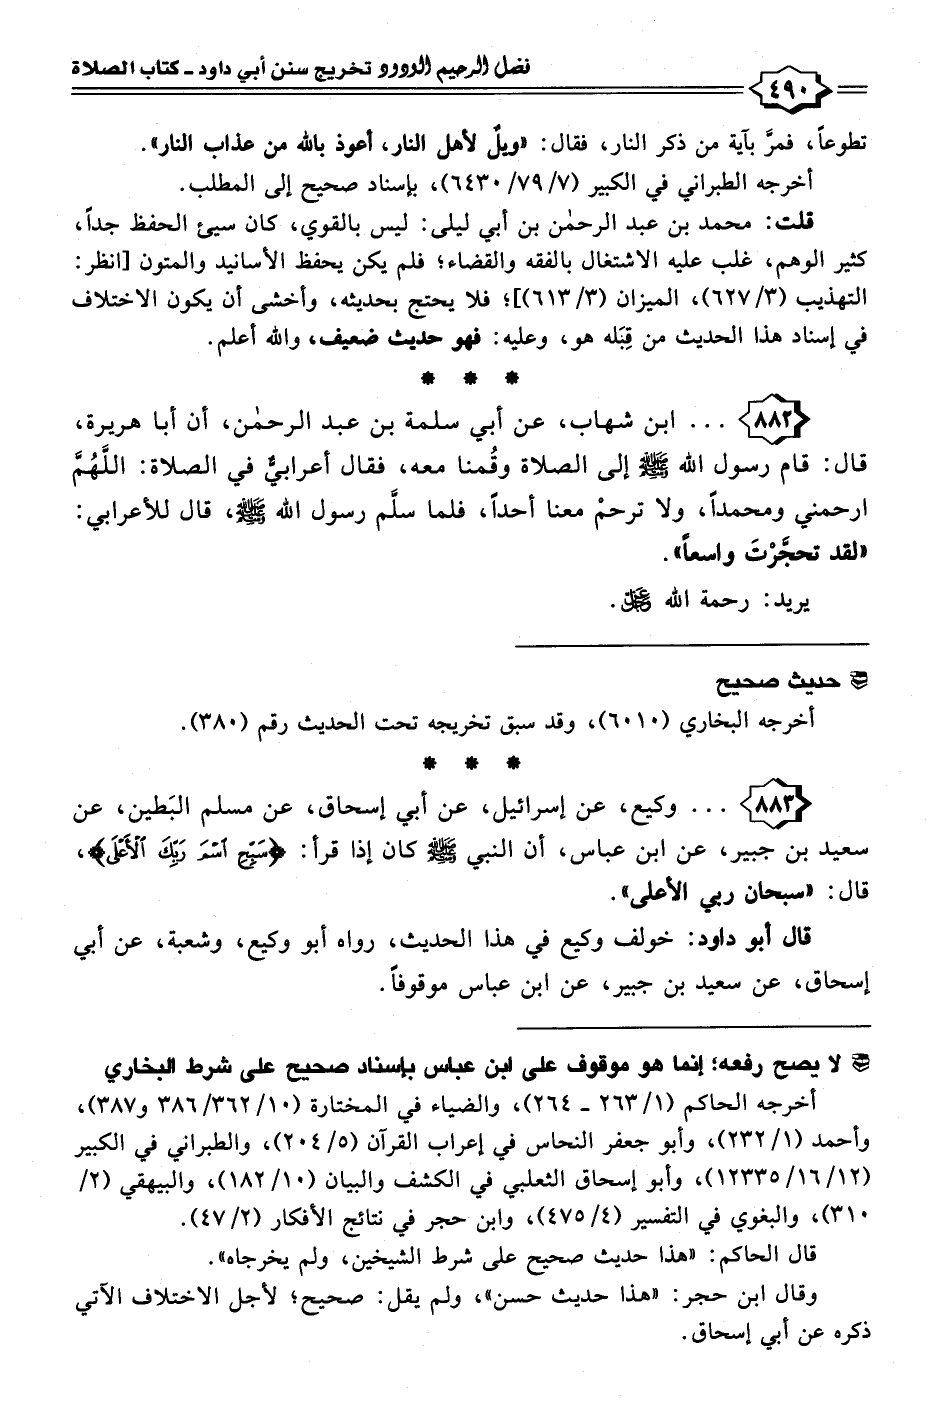 فضل الرحيم الودود تخريج سنن أبي داود - كتاب الصلاة
٤٩٠
تطوعاً، فمرَّ بآية من ذكر النار، فقال: «ويلٌ لأهل النار، أعوذ بالله من عذاب النار».
أخرجه الطبراني في الكبير (٧/ ٧٩/ ٦٤٣٠)، بإسناد صحيح إلى المطلب.
قلت: محمد بن عبد الرحمٰن بن أبي ليلى: ليس بالقوي، كان سيئ الحفظ جداً،
كثير الوهم، غلب عليه الاشتغال بالفقه والقضاء؛ فلم يكن يحفظ الأسانيد والمتون [انظر:
التهذيب (٣/ ٦٢٧)، الميزان (٣/ ٦١٣)]؛ فلا يحتج بحديثه، وأخشى أن يكون الاختلاف
في إسناد هذا الحديث من قِبَله هو، وعليه: فهو حديث ضعيف، والله أعلم.
* * *
٨٨٢ ... ابن شهاب، عن أبي سلمة بن عبد الرحمٰن، أن أبا هريرة،
قال: قام رسول الله ﷺ إلى الصلاة وقُمنا معه، فقال أعرابيٌّ في الصلاة: اللَّهُمَّ
ارحمني ومحمداً، ولا ترحمْ معنا أحداً، فلما سلَّم رسول الله ﷺ، قال للأعرابي:
«لقد تحجَّرْتَ واسعاً».
يريد: رحمة الله ﷿.
حديث صحيح
أخرجه البخاري (٦٠١٠)، وقد سبق تخريجه تحت الحديث رقم (٣٨٠).
* * *
٨٨٣ ... وكيع، عن إسرائيل، عن أبي إسحاق، عن مسلم البَطين، عن
سعيد بن جبير، عن ابن عباس، أن النبي ﷺ كان إذا قرأ: ﴿سَبِّحِ اسْمَ رَبِّكَ ٱلْأَعْلَى﴾،
قال: «سبحان ربي الأعلى».
قال أبو داود: خولف وكيع في هذا الحديث، رواه أبو وكيع، وشعبة، عن أبي
إسحاق، عن سعيد بن جبير، عن ابن عباس موقوفاً.
لا يصح رفعه؛ إنما هو موقوف على ابن عباس بإسناد صحيح على شرط البخاري
أخرجه الحاكم (١/ ٢٦٣ - ٢٦٤)، والضياء في المختارة (١٠/ ٣٦٢/ ٣٨٦ و٣٨٧)،
وأحمد (١/ ٢٣٢)، وأبو جعفر النحاس في إعراب القرآن (٥/ ٢٠٤)، والطبراني في الكبير
(١٢/ ١٦/ ١٢٣٣٥)، وأبو إسحاق الثعلبي في الكشف والبيان (١٠/ ١٨٢)، والبيهقي (٢/
٣١٠)، والبغوي في التفسير (٤/ ٤٧٥)، وابن حجر في نتائج الأفكار (٢/ ٤٧).
قال الحاكم: «هذا حديث صحيح على شرط الشيخين، ولم يخرجاه».
وقال ابن حجر: «هذا حديث حسن»، ولم يقل: صحيح؛ لأجل الاختلاف الآتي
ذكره عن أبي إسحاق.